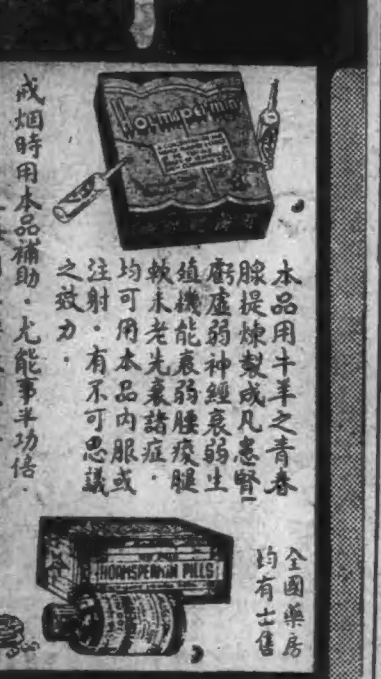 Hormspermin
本品用牛羊之青春
腺提煉製成凡患腎
虧虛弱神經衰弱生
殖機能衰弱腰痠腿
軟未老先衰諸症．
均可用本品內服或
注射．有不可思議
之效力．
戒烟時用本品補助．尤能事半功倍．
HORMSPERMIN PILLS
全國藥房
均有出售